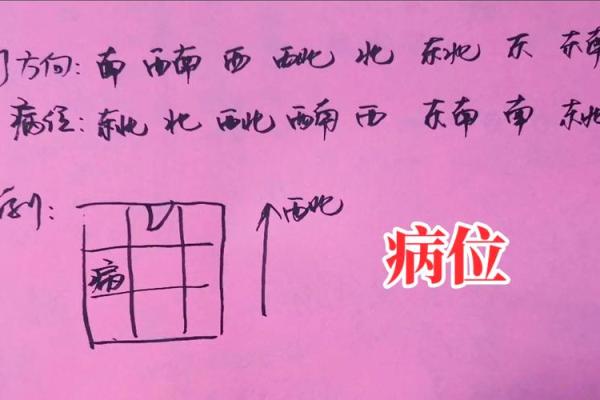 门方向: 南 西南 西 西北 北 东北 东 东南
病位: 东北 北 西北 西南 西 东南 南 东北
例: 西北
病位
病